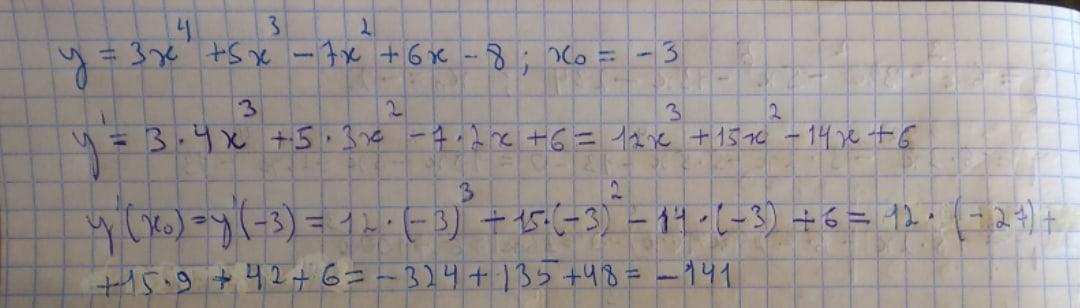 y = 3x⁴ + 5x³ − 7x² + 6x − 8 ; x₀ = −3
y' = 3·4x³ + 5·3x² − 7·2x + 6 = 12x³ + 15x² − 14x + 6
y'(x₀) = y'(−3) = 12·(−3)³ + 15·(−3)² − 14·(−3) + 6 = 12·(−27) +
+15·9 + 42 + 6 = −324 + 135 + 48 = −141